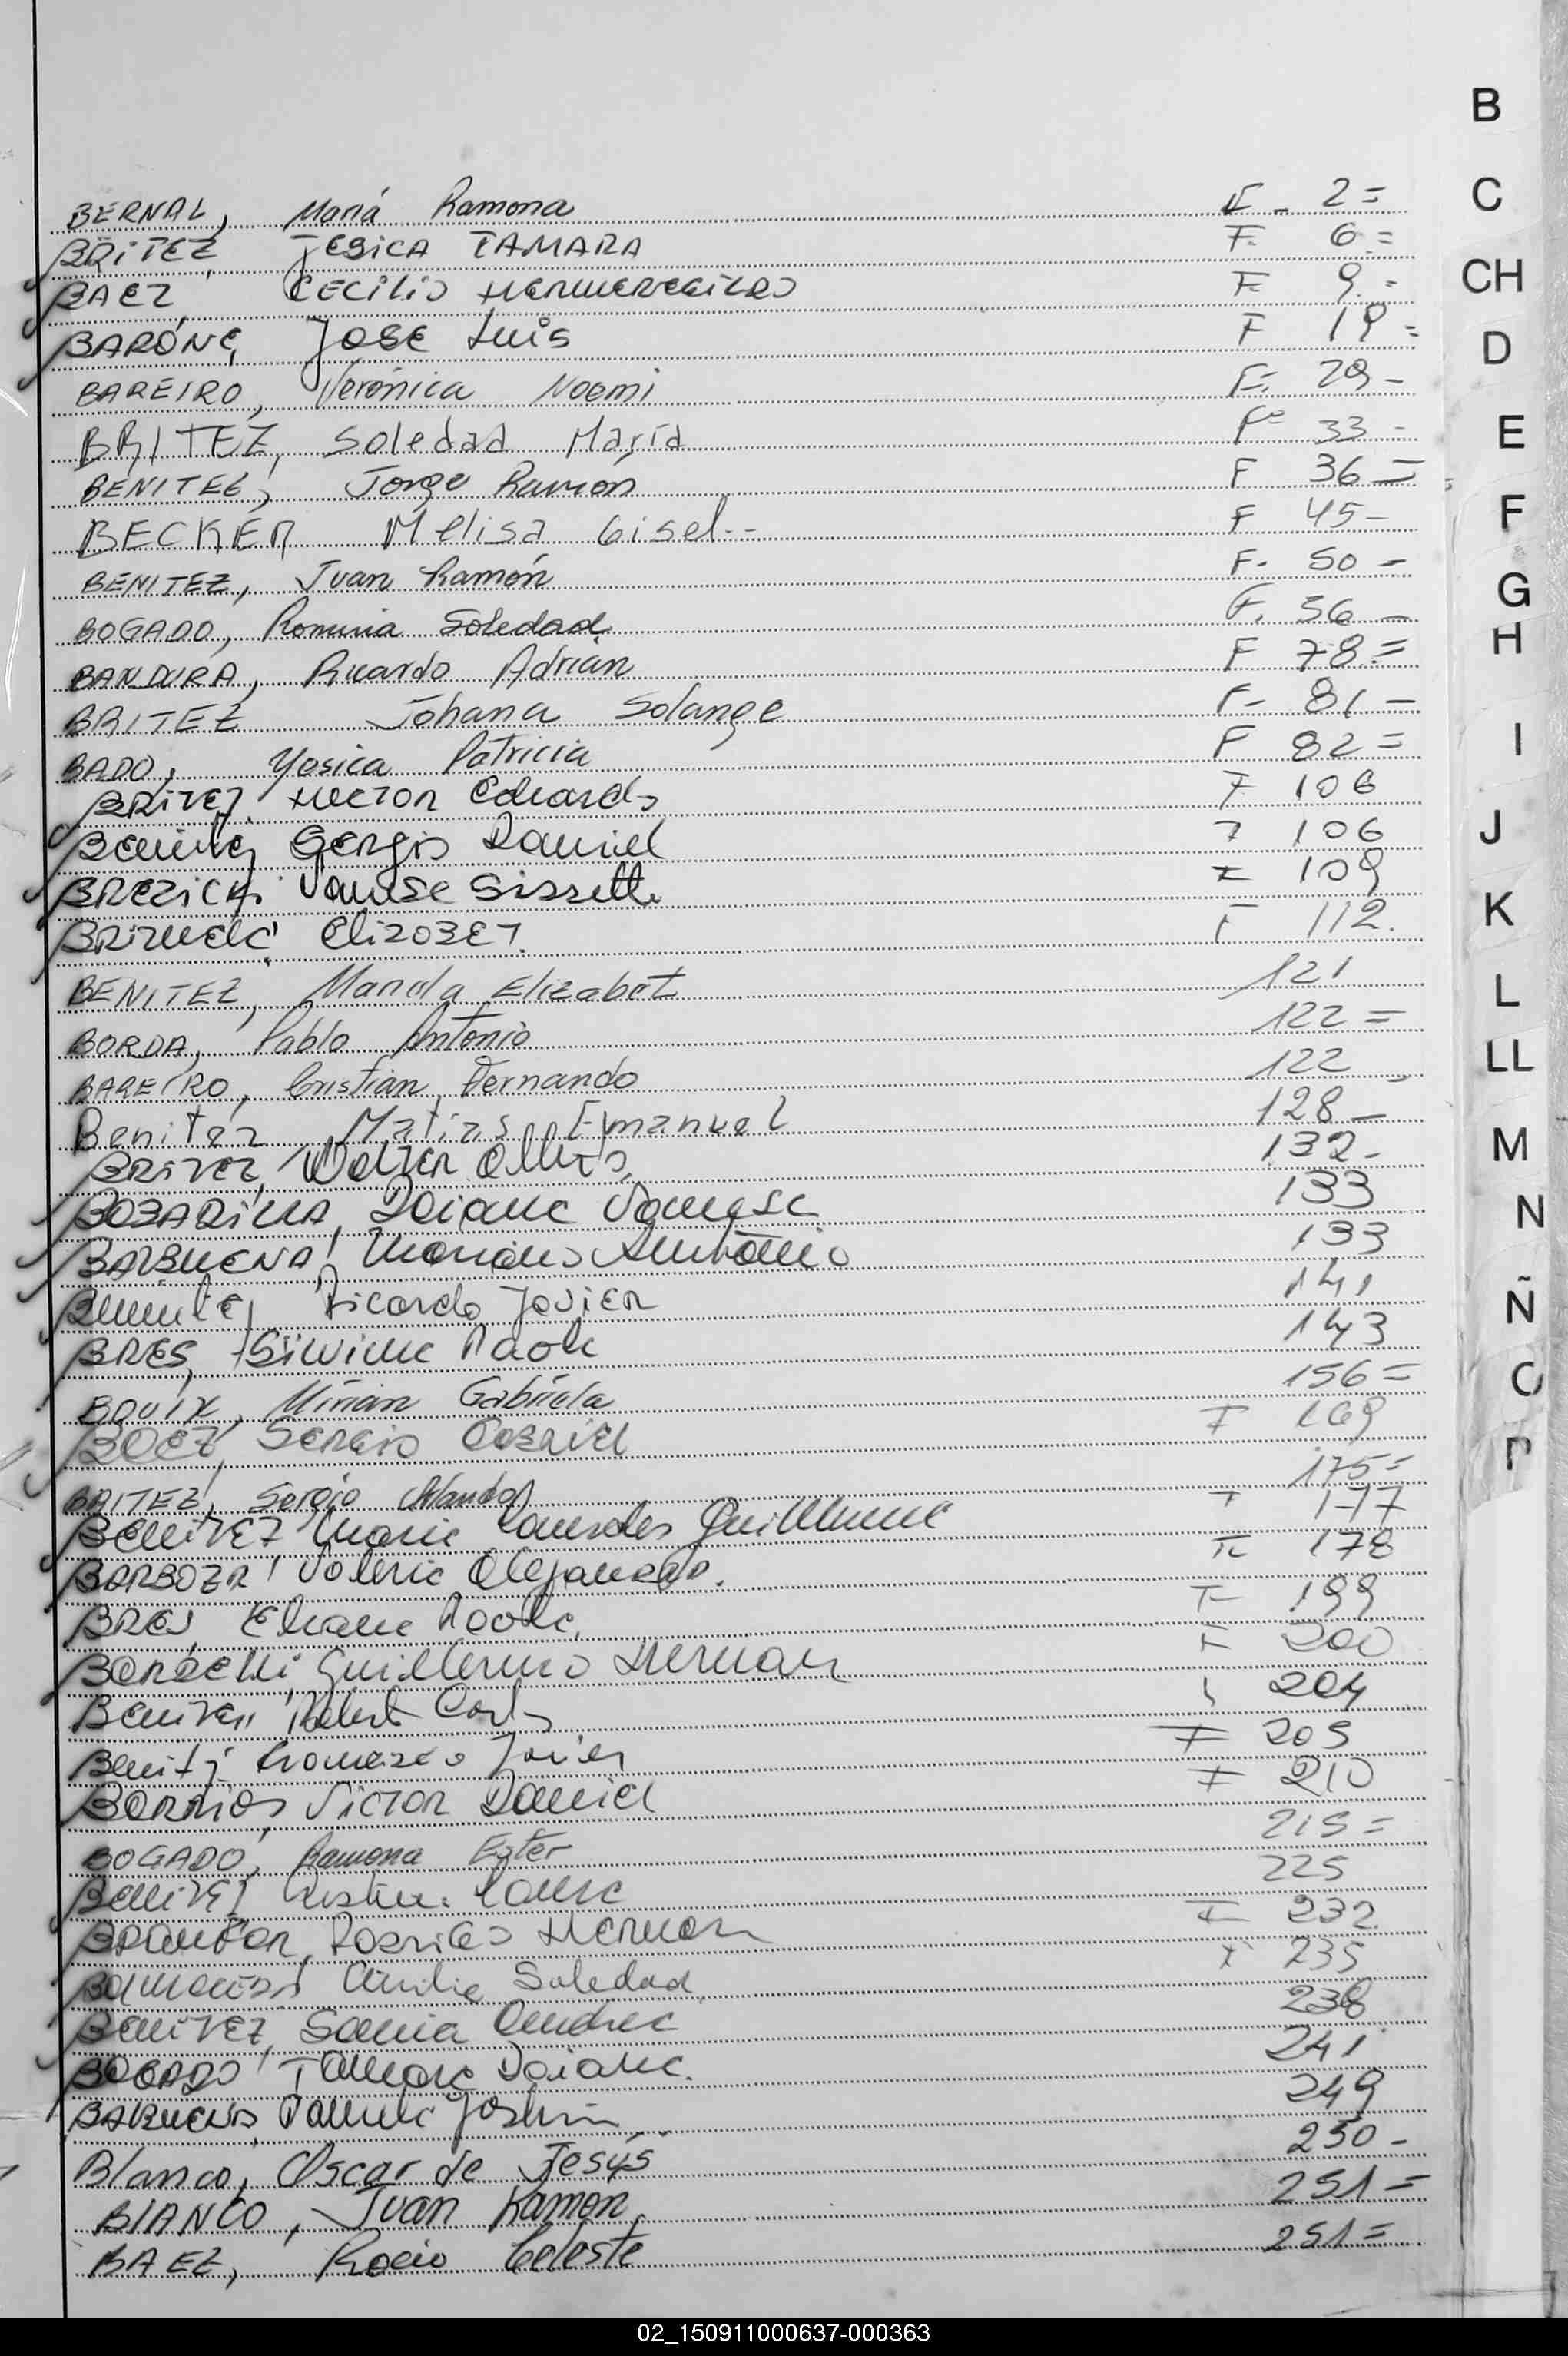 B
C
CH
D
E
F
G
H
I
J
K
L
LL
M
N
Ñ
O
P
BERNAL, María Ramona F_ 2=
BRiTEZ, JESICA TAMARA F. 6=
BAEZ CECILIO HERMENEGILDO F. 9.-
BARÓNE, JOSE Luis F 19=
BAREIRO, Verónica Noemi F. 29-
BRITEZ, Soledad María Fº 33-
BENITEZ, Jorge Ramón F 36=
BECKER Melisa Gisel-- F 45-
BENITEZ, Juan Ramón F. 50-
BOGADO, Romina Soledad F. 56-
BANDURA, Ricardo Adrián F 78=
BRITEZ Johana Solange F- 81-
BADO, Yesica Patricia F 82=
BRITEZ, HECTOR Eduardo F 106
Benitez Sergio Daniel F 106
BREZICKI Sissette F 109
BRIZUELA ELIZABET. F 112.
BENITEZ, Mariela Elizabet 121
BORDA, Pablo Antonio 122=
BAREIRO, Cristian Fernando 122-
Benitez Matías Emanuel 128-
BRITEZ, Walter 132-
BOBADILLA, Daiana Vanesa 133
BALBUENA, Mariano Antonio 133
Benitez Ricardo Javier 141
BRES, Silvina Paola 143
BOUIX, Mirian Gabriela 156=
BAEZ, SERGIO GABRIEL F 169
BRITEZ, Sergio Orlando 175=
BENITEZ Maria Lourdes Guillermina F 177
BARBOZA, Valeria Alejandra. F 178
BRES, Eliana Paola F 199
Guillermo Hernan F 200
Benitez, Robert Carlos 204
Benitez Javier F 209
BARRIOS, VICTOR Daniel F 210
BOGADO, Ramona Ester 215=
BENITEZ Laura 225
Rodrigo Hernan F 232
Soledad F 235
BENITEZ, Sonia Andrea 238
BOGADO, Tamara Daiana. 241
BALBUENA, 249
Blanco, Oscar de Jesús 250-
BlANCO, Juan Ramón 251=
BAEZ, Rocio Celeste 251=
02_150911000637-000363